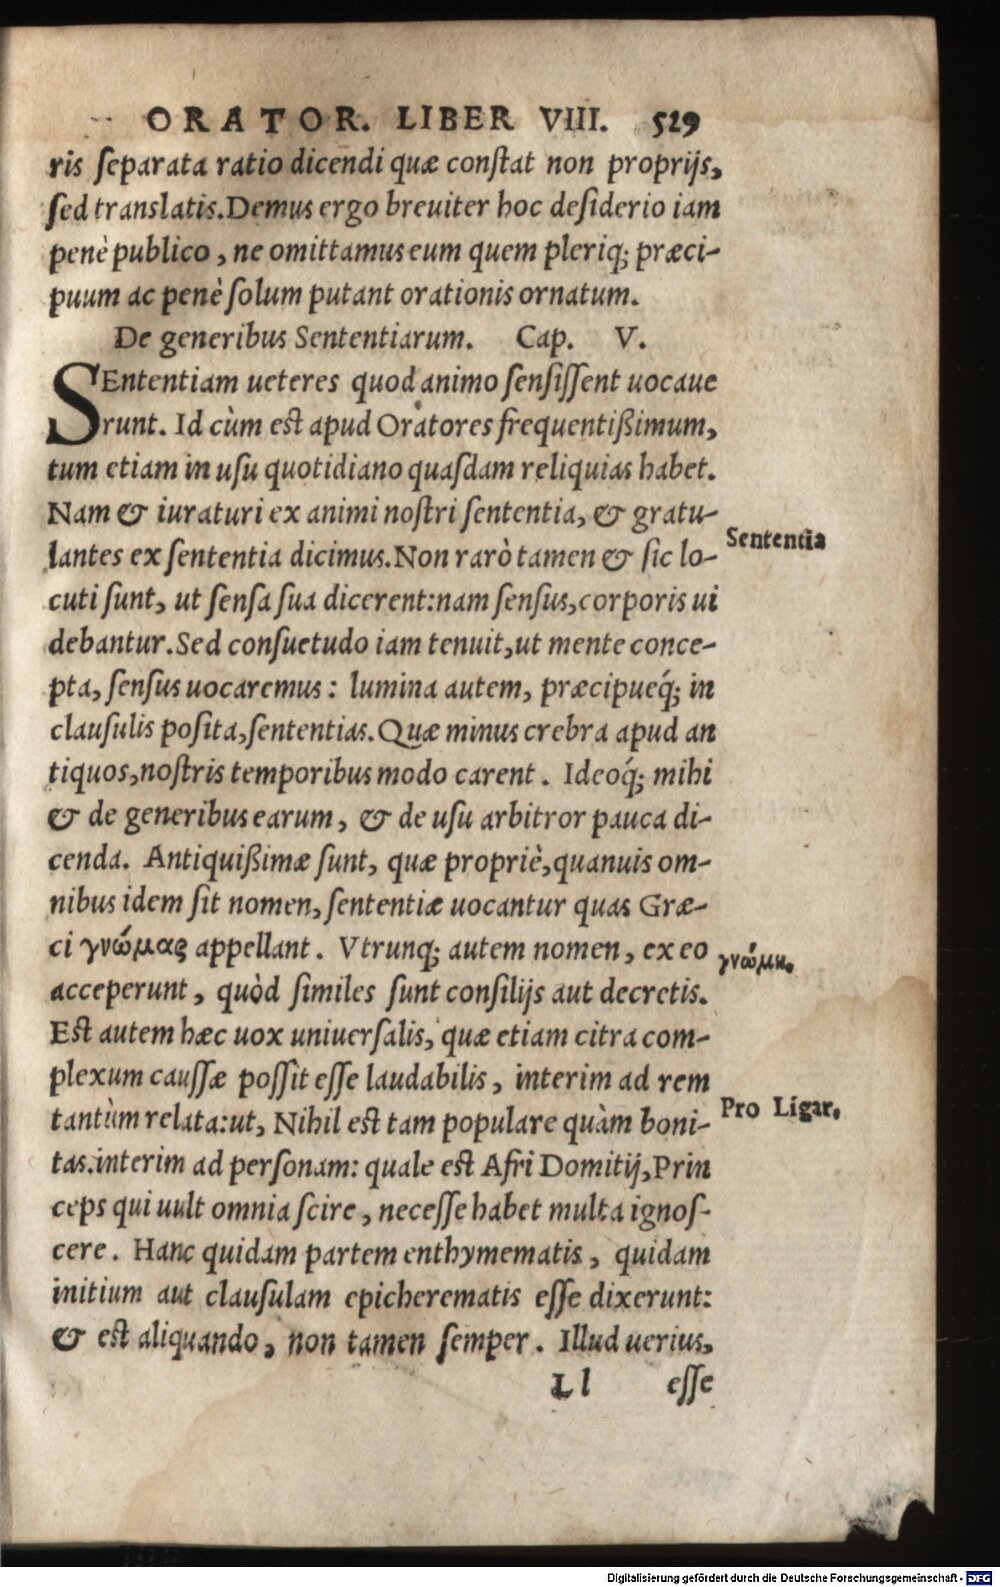 ORATOR. LIBER VIII. 529
ris separata ratio dicendi quæ constat non proprijs,
sed translatis.Demus ergo breuiter hoc desiderio iam
penè publico, ne omittamus eum quem pleriq; præci-
puum ac penè solum putant orationis ornatum.
De generibus Sententiarum. Cap. V.
SEntentiam ueteres quod animo sensissent uocaue
runt. Id cùm est apud Oratores frequentißimum,
tum etiam in usu quotidiano quasdam reliquias habet.
Nam & iuraturi ex animi nostri sententia, & gratu-
lantes ex sententia dicimus.Non rarò tamen & sic lo-
Sententia
cuti sunt, ut sensa sua dicerent:nam sensus,corporis ui
debantur.Sed consuetudo iam tenuit,ut mente conce-
pta, sensus uocaremus: lumina autem, præcipueq́; in
clausulis posita,sententias.Quæ minus crebra apud an
tiquos,nostris temporibus modo carent. Ideoq́; mihi
& de generibus earum, & de usu arbitror pauca di-
cenda. Antiquißimæ sunt, quæ propriè,quanuis om-
nibus idem sit nomen, sententiæ uocantur quas Græ-
ci γνώμας appellant. Vtrunq; autem nomen, ex eo
γνώμη.
acceperunt, quòd similes sunt consilijs aut decretis.
Est autem hæc uox uniuersalis, quæ etiam citra com-
plexum caussæ possit esse laudabilis, interim ad rem
tantùm relata:ut, Nihil est tam populare quàm boni-
Pro Ligar.
tas.interim ad personam: quale est Afri Domitij,Prin
ceps qui uult omnia scire, necesse habet multa ignos-
cere. Hanc quidam partem enthymematis, quidam
initium aut clausulam epicherematis esse dixerunt:
& est aliquando, non tamen semper. Illud uerius,
Ll esse
Digitalisierung gefördert durch die Deutsche Forschungsgemeinschaft - DFG